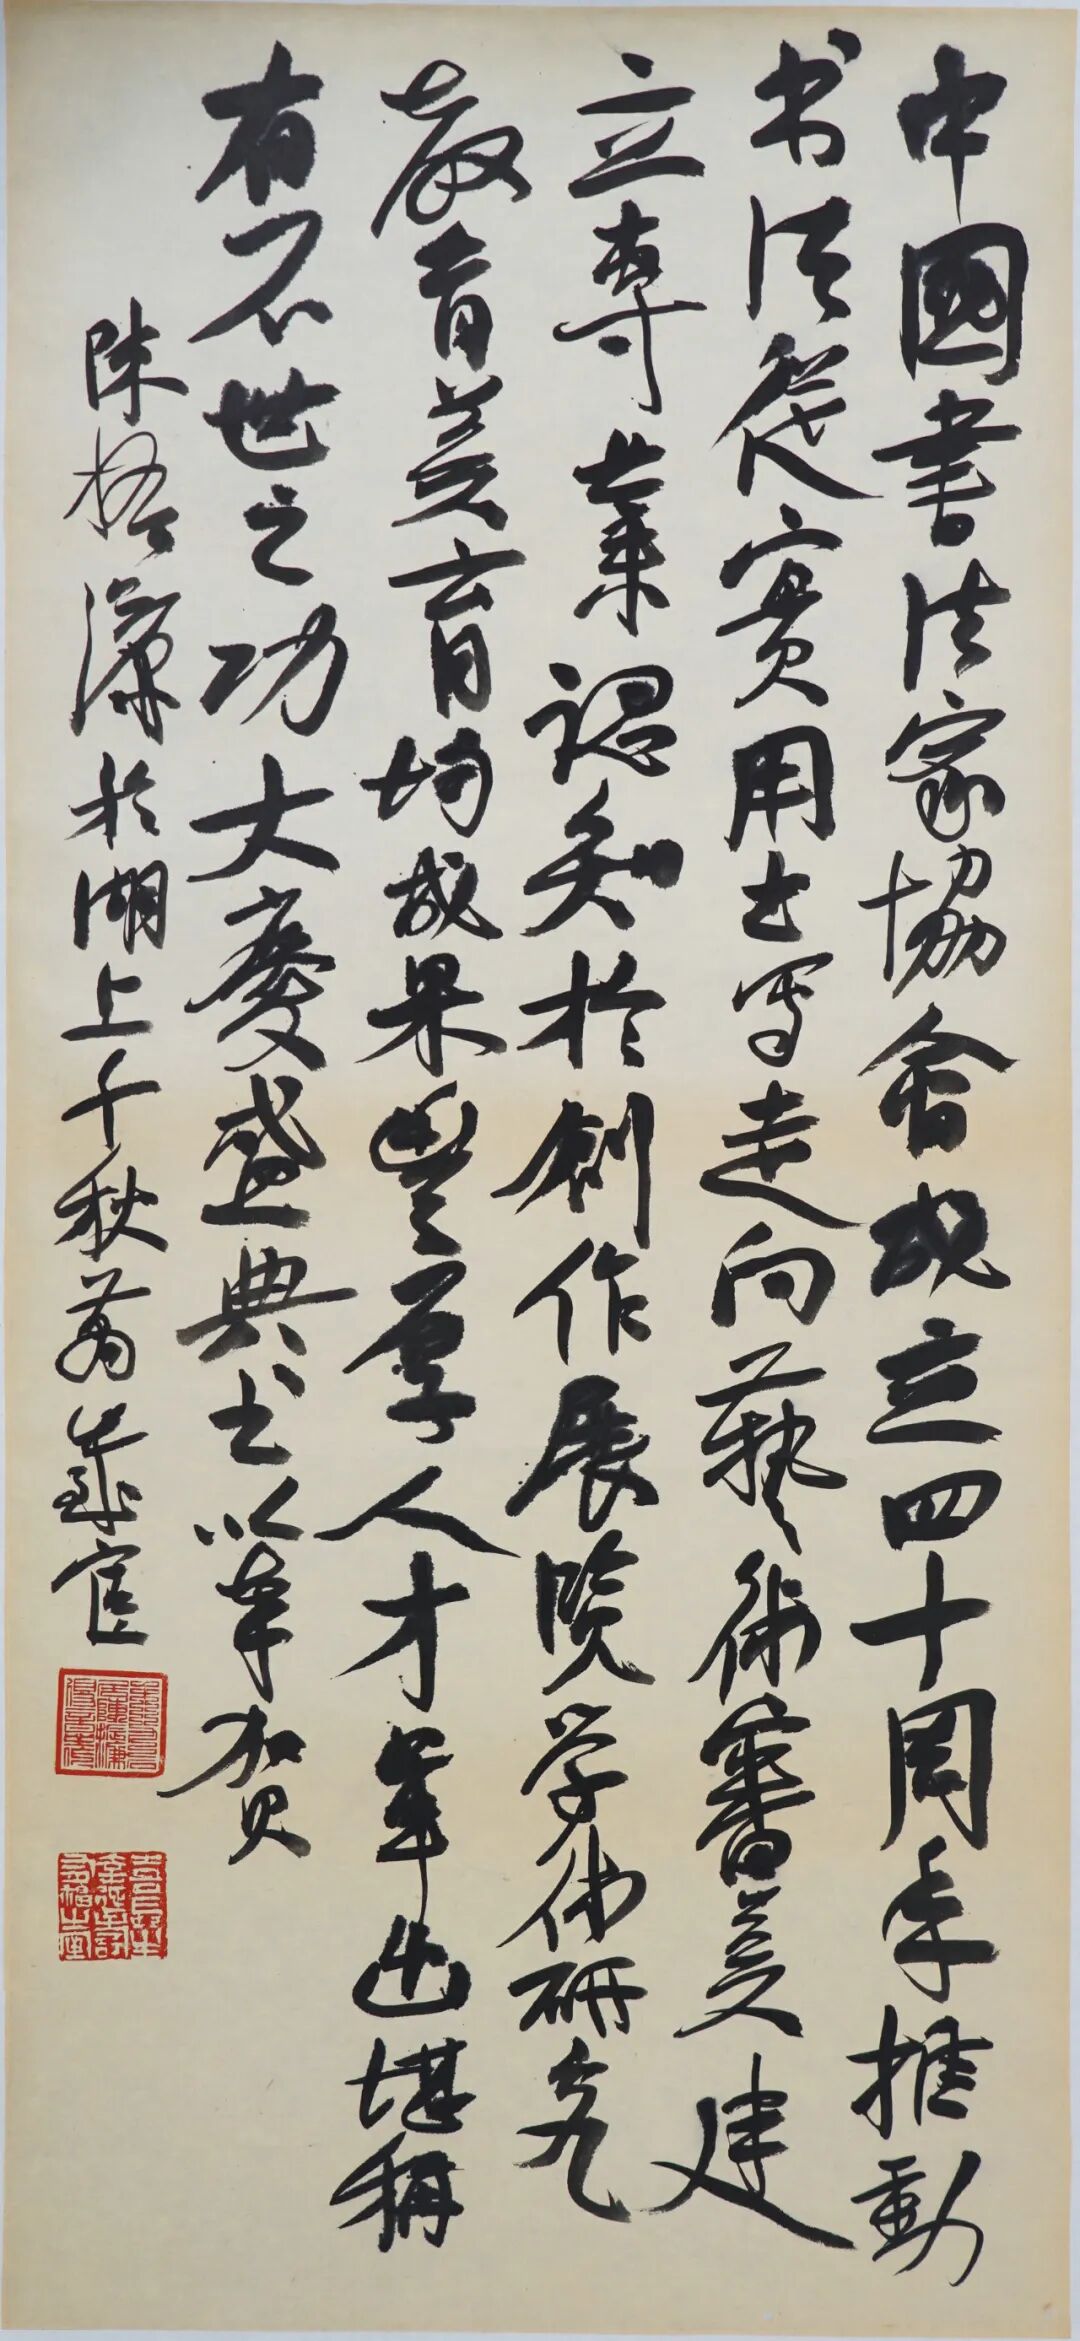 中國書法家協會成立四十周年推動
书法從實用书写走向藝術審美建
立專業認知於創作展覽学術研究
教育美育均成果豐厚人才輩出堪稱
有不世之功大慶盛典书以奉賀
陳振濂於湖上千秋萬歲宧